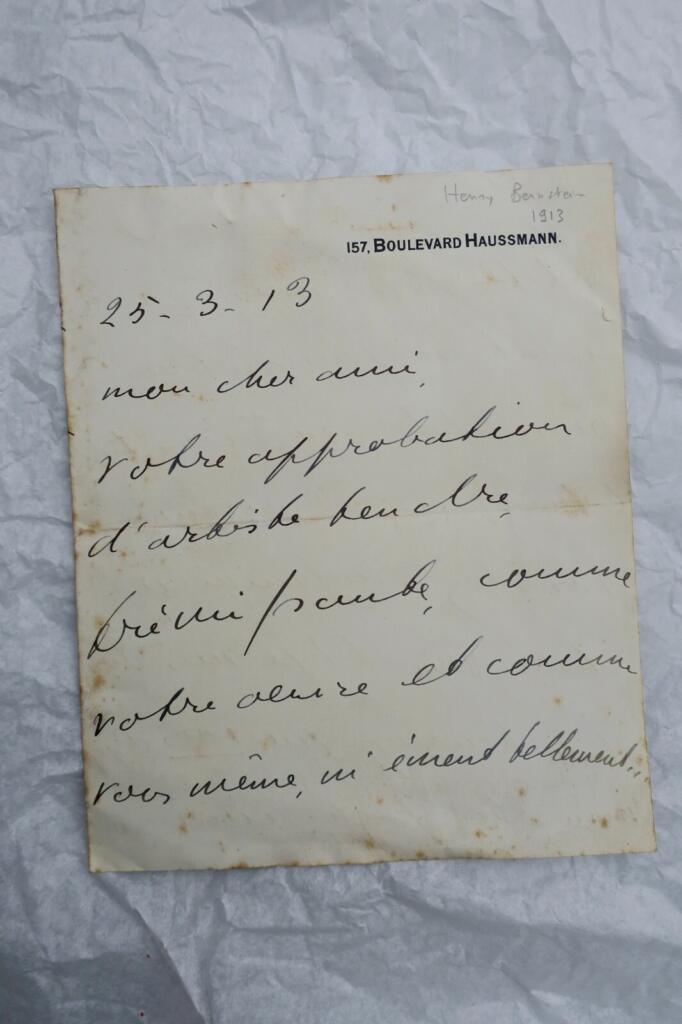 Henry Bernstein
1913
157, BOULEVARD HAUSSMANN.
25-3-13
mon cher ami,
votre approbation
d'artiste tendre,
frémissante, comme
votre œuvre et comme
vous même, m'émeut tellement..